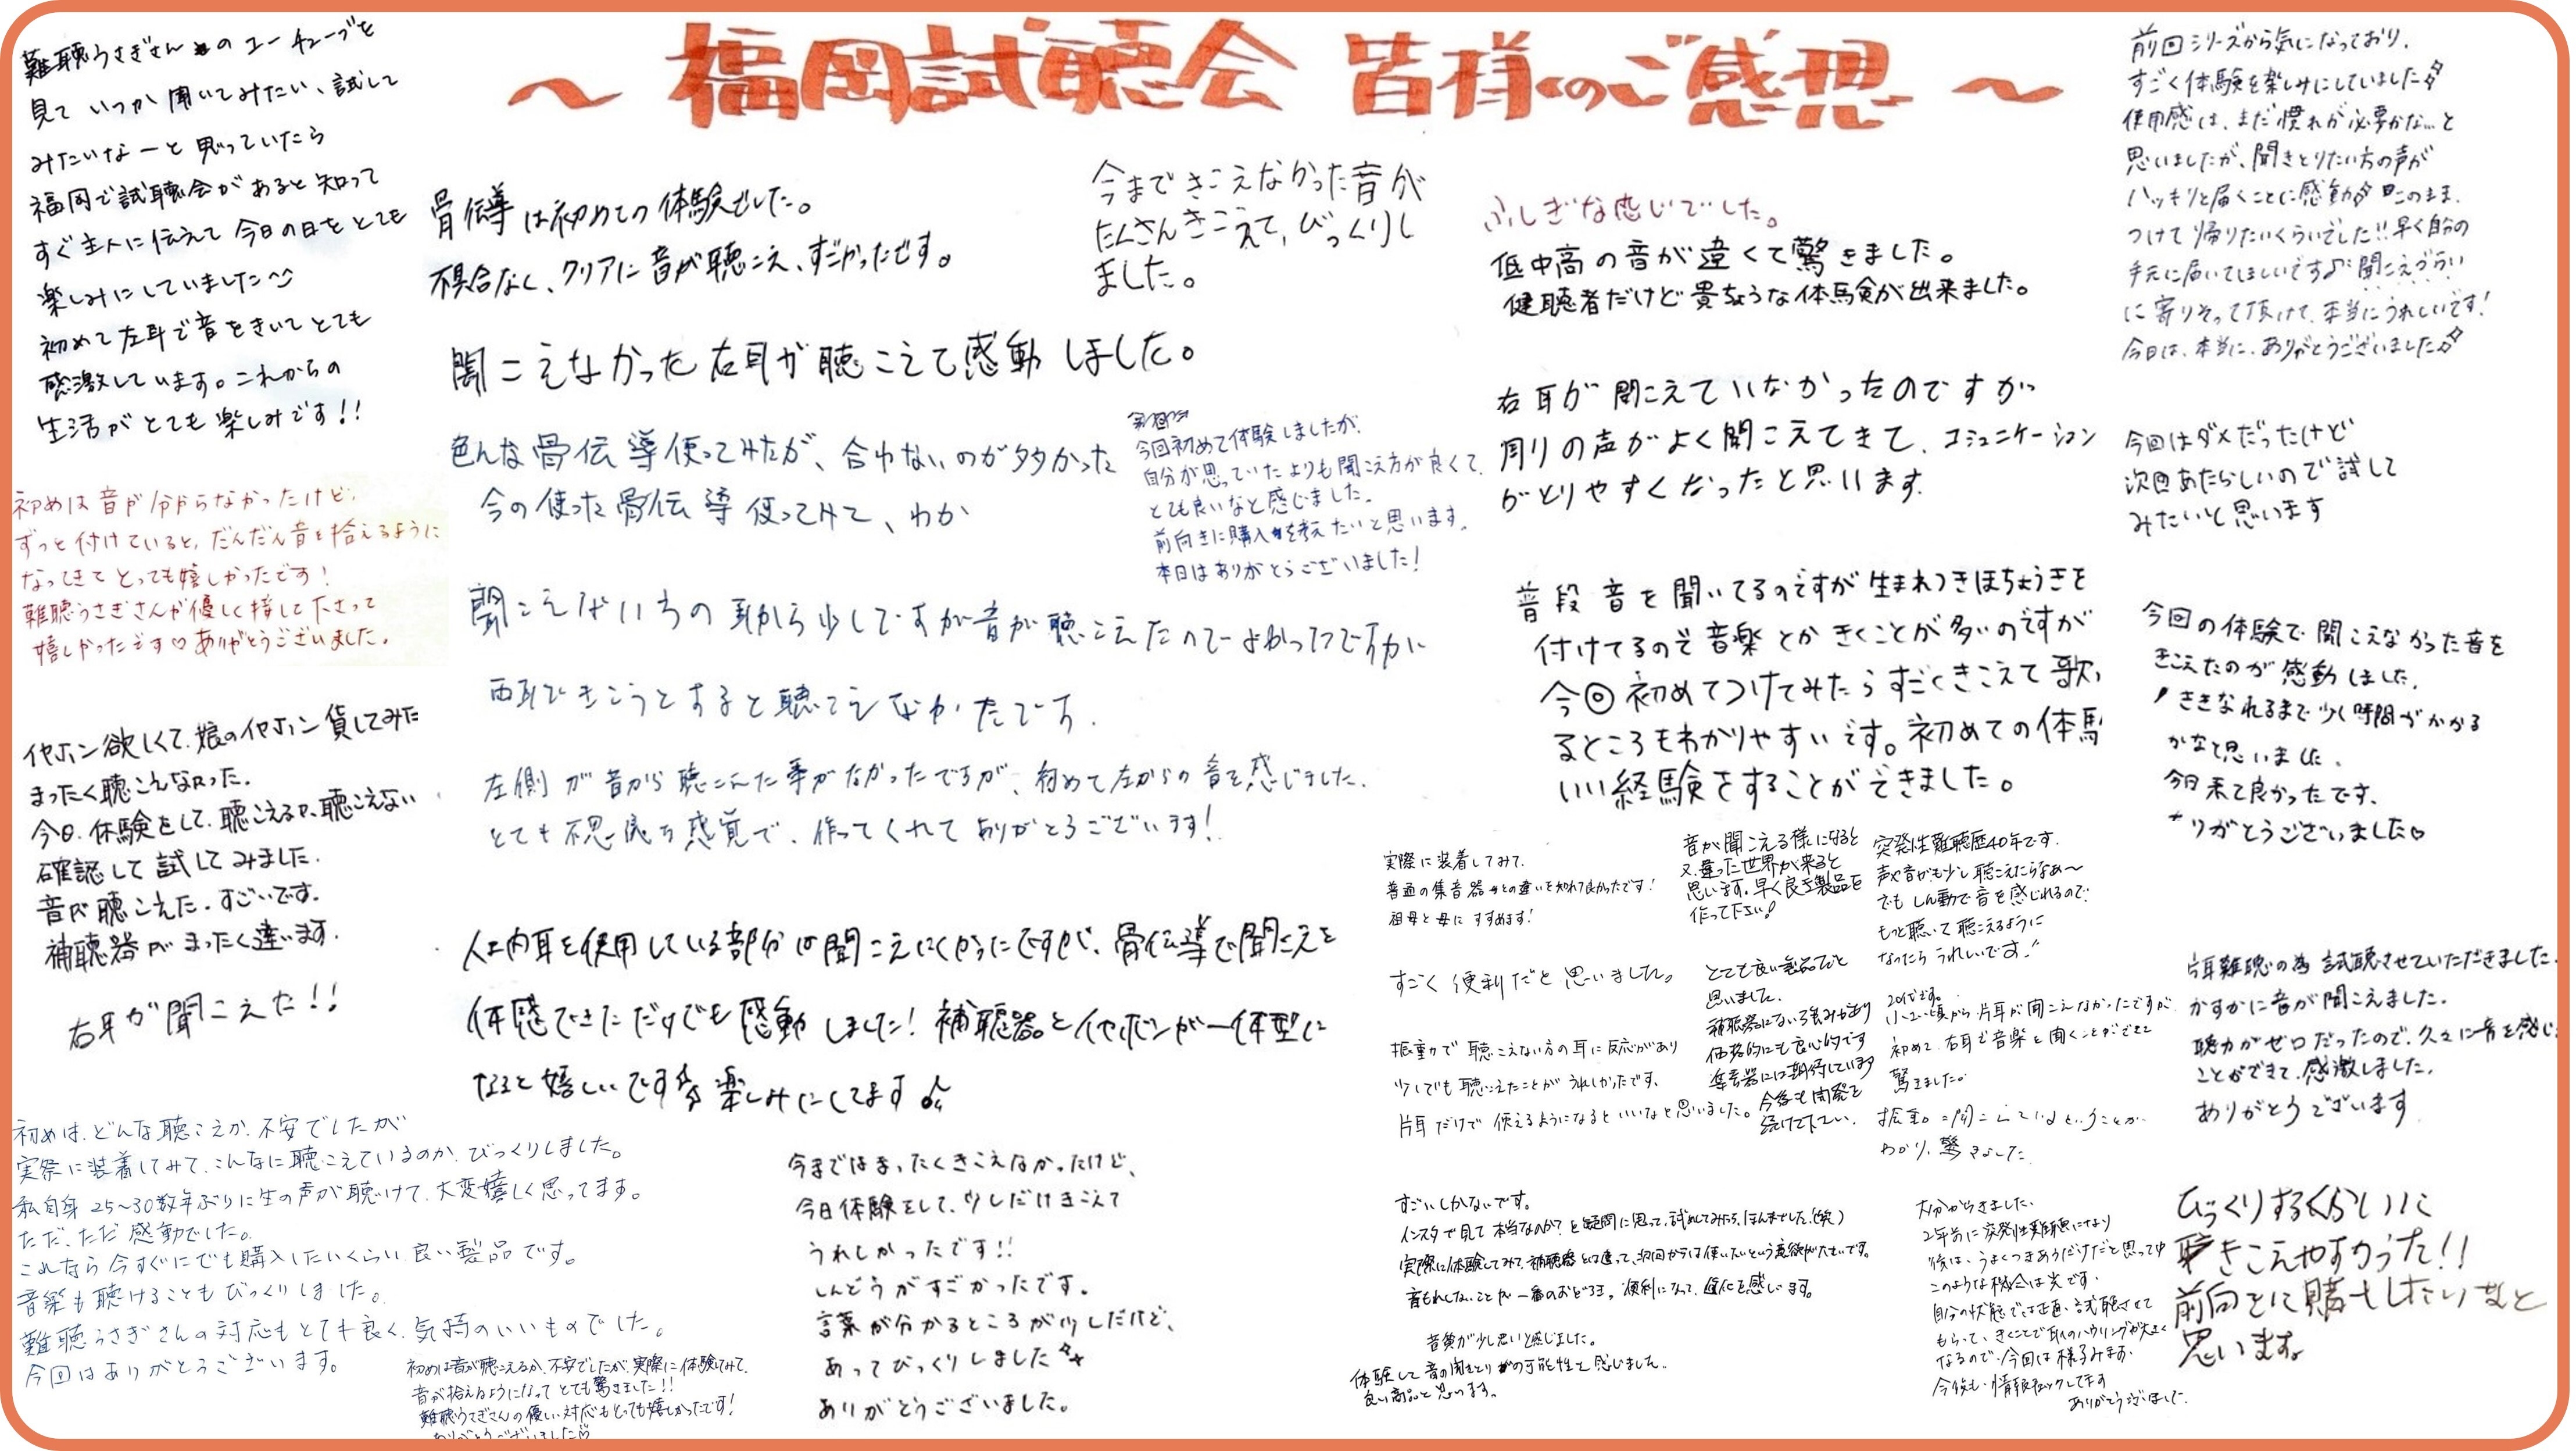 ～福岡試聴会 皆様のご感想～
難聴うさぎさんのユーチューブを
見て いつか聞いてみたい、試して
みたいなーと思っていたら
福岡で試聴会があると知って
すぐ主人に伝えて 今日の日をとても
楽しみにしていました
初めて左耳で音をきいてとても
感激しています。これからの
生活がとても楽しみです!!
初めは音が分からなかったけど、
ずっと付けていると、だんだん音を拾えるように
なってきてとっても嬉しかったです!
難聴うさぎさんが優しく接して下さって
嬉しかったです♡ありがとうございました。
イヤホン欲しくて、娘のイヤホン貸してみた
まったく聴こえなかった。
今日、体験をして、聴こえるか、聴こえない
確認して試してみました。
音が聴こえた。すごいです。
補聴器がまったく違います。
右耳が聞こえた!!
初めは、どんな聴こえか、不安でしたが
実際に装着してみて、こんなに聴こえているのか、びっくりしました。
私自身 25～30数年ぶりに生の声が聴けて、大変嬉しく思ってます。
ただ、ただ 感動でした。
これなら今すぐにでも購入したいくらい良い製品です。
音楽も聴けることもびっくりしました。
難聴うさぎさんの対応もとても良く、気持のいいものでした。
今回はありがとうございます。
初めは音が聴こえるか、不安でしたが、実際に体験してみて、
音が拾えるようになってとても驚きました!!
難聴うさぎさんの優しい対応もとっても嬉しかったです!
ありがとうございました♡
骨伝導は初めての体験でした。
不具合なく、クリアに音が聴こえ、すごかったです。
今まできこえなかった音が
たくさんきこえて、びっくりし
ました。
聞こえなかった右耳が聴こえて感動しました。
色んな骨伝導使ってみたが、合わないのが多かった
今の使った骨伝導使ってみて、わか
今回初めて体験しましたが、
自分が思っていたよりも聞こえ方が良くて、
とても良いなと感じました。
前向きに購入を考えたいと思います。
本日はありがとうございました!
聞こえない方の耳から少しですが音が聴こえたので
左側が昔から聴こえた事がなかったですが、初めて左からの音を感じました。
とても不思議な感覚で、作ってくれてありがとうございます!
人工内耳を使用している部分は聞こえにくかったですが、骨伝導で聞こえを
体感できただけでも感動しました! 補聴器とイヤホンが一体型に
なると嬉しいです 楽しみにしてます♪
今まではまったくきこえなかったけど、
今日体験をして、少しだけきこえて
うれしかったです!!
しんどうがすごかったです。
言葉が分かるところが少しだけど、
あってびっくりしました
ありがとうございました。
ふしぎな感じでした。
低中高の音が違くて驚きました。
健聴者だけど貴ちょうな体験が出来ました。
右耳が聞こえていなかったのですが
周りの声がよく聞こえてきて、コミュニケーション
がとりやすくなったと思います。
普段 音を聞いてるのですが生まれつきほちょうきを
付けてるので音楽とかきくことが多いのですが
今回初めてつけてみたらすごくきこえて歌
るところもわかりやすいです。初めての体験
いい経験をすることができました。
実際に装着してみて、
普通の集音器との違いを知れて良かったです!
祖母と母にすすめます!
音が聞こえる様になると
又、違った世界が来ると
思います。早く良き製品を
作って下さい!
突発性難聴歴40年です。
声や音がも少し聴こえたらなぁ～
でもしん動で音を感じれるので
もっと聴いて聴こえるように
なったらうれしいです!
すごく便利だと思いました。
とても良い製品だと
思いました。
補聴器にない強みがあり
価格的にも良心的です
集音器には期待しています
今後も開発を
続けて下さい。
20代です。
小1～2頃から片耳が聞こえなかったですが
初めて右耳で音楽を聞くことができて
驚きました。
振動で聴こえない方の耳に反応があり
少しでも聴こえたことがうれしかったです、
片耳だけで使えるようになるといいなと思いました。
わかり、驚きました。
すごいしかないです。
インスタで見て本当なのか?と疑問に思って、試めしてみたら、ほんまでした。(笑)
実際に体験してみて、補聴器とは違って、次回からは使いたいという意欲がたかいです。
音もれしないことが一番のおどろき。便利になって、進化を感じます。
音質が少し悪いと感じました。
体験して音の聞きとりの可能性を感じました。
良い商品と思います。
大分からきました。
2年前に突発性難聴になり
後は、うまくつきあうだけだと思って
このような機会は光です。
自分の状態では正直、試聴させて
もらって、きくことで耳のハウリングが大きく
なるので、今回は様子みます。
今後も情報チェックしてます
ありがとうございました。
前回シリーズから気になっており、
すごく体験を楽しみにしていました
使用感は、まだ慣れが必要かな…と
思いましたが、聞きとりたい方の声が
ハッキリと届くことに感動 このまま、
つけて帰りたいくらいでした!!早く自分の
手元に届いてほしいです♪聞こえづらい
に寄りそって頂けて、本当にうれしいです!
今日は、本当に、ありがとうございました
今回はダメだったけど
次回あたらしいので試して
みたいと思います
今回の体験で聞こえなかった音を
きこえたのが感動しました。
ききなれるまで少し時間がかかる
かなと思いました。
今日来て良かったです、
ありがとうございました♡
片耳難聴の為 試聴させていただきました。
かすかに音が聞こえました。
聴力がゼロだったので、久々に音を感じ
ことができて、感激しました。
ありがとうございます
びっくりするくらいに
きこえやすかった!!
前向きに購入したいなと
思います。